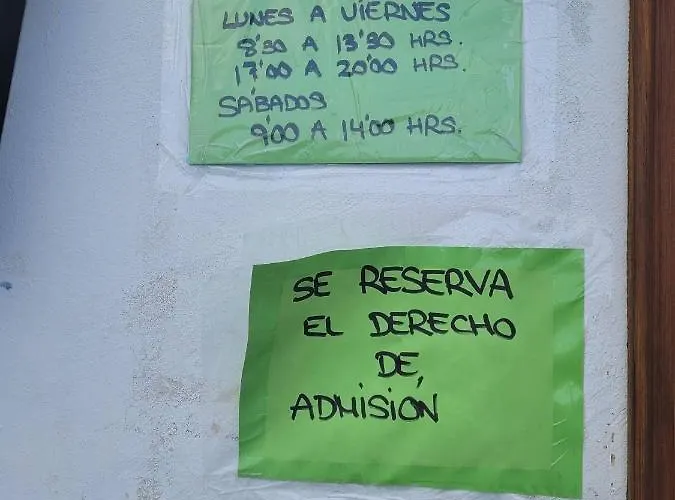 LUNES A VIERNES
8'30 A 13'30 HRS.
17'00 A 20'00 HRS.
SÁBADOS
9'00 A 14'00 HRS.
SE RESERVA
EL DERECHO
DE
ADMISIÓN